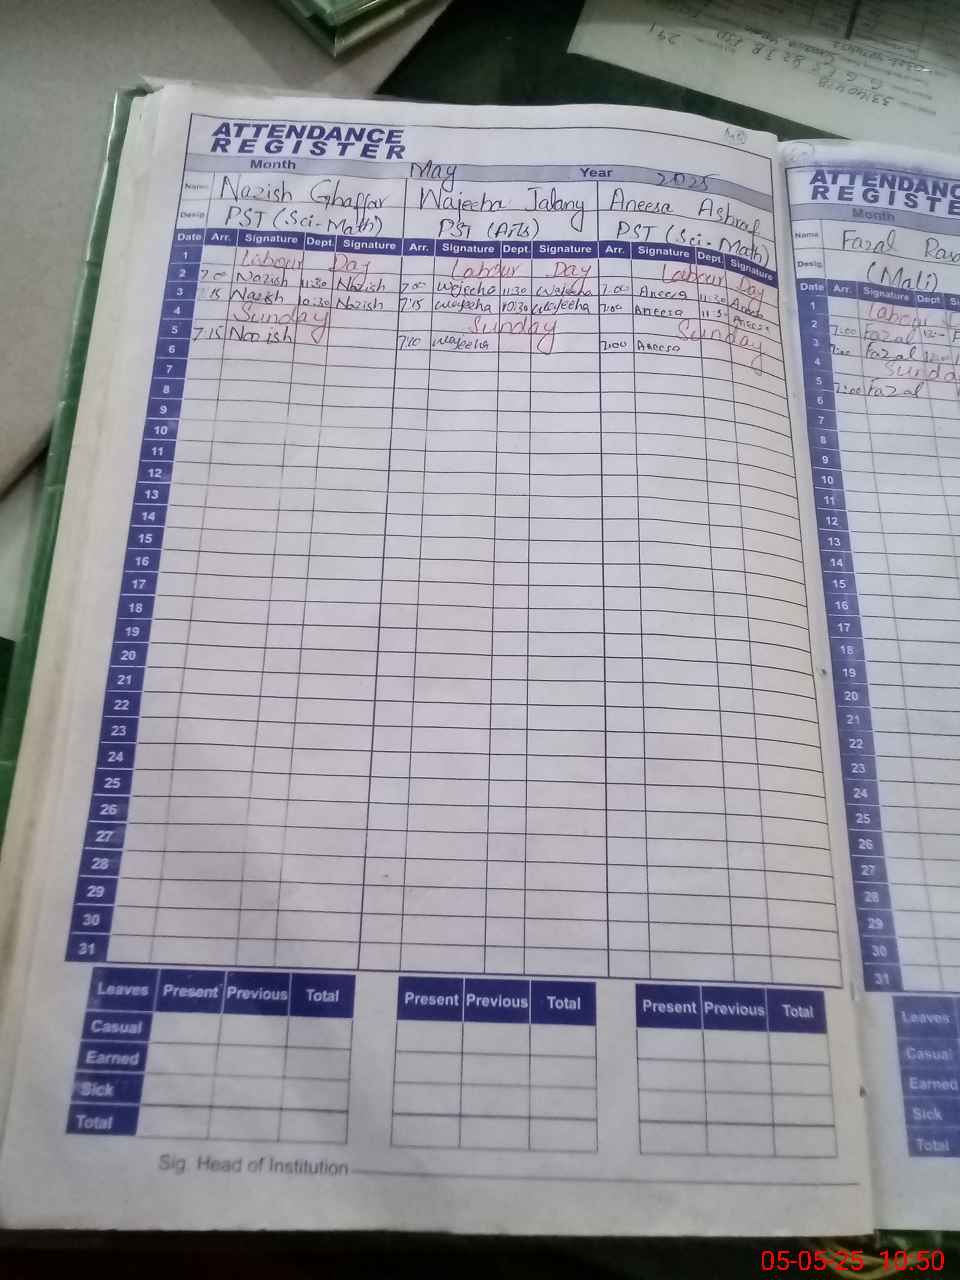 ATTENDANCE
REGISTER
Month May Year 2025
Name Nazish Ghaffar Wajeeha Jalany Aneesa Ashraf
Desig PST (Sci-Math) PST (Arts) PST (Sci-Math)
Date Arr. Signature Dept. Signature Arr. Signature Dept. Signature Arr. Signature Dept. Signature
1 Labour Day Labour Day Labour Day
2 7:00 Nazish 11:30 Nazish 7:00 Wajeeha 11:30 Wajeeha 7:00 Aneesa 11:30 Aneesa
3 7:15 Nazish 10:30 Nazish 7:15 Wajeeha 10:30 Wajeeha 7:00 Aneesa 11:30 Aneesa
4 Sunday Sunday Sunday
5 7:15 Nazish 7:10 Wajeeha 7:00 Aneesa
6
7
8
9
10
11
12
13
14
15
16
17
18
19
20
21
22
23
24
25
26
27
28
29
30
31
Leaves Present Previous Total Present Previous Total Present Previous Total
Casual
Earned
Sick
Total
Sig. Head of Institution
ATTENDANC
REGISTE
Month
Name Fazal
Desig (Mali)
Date Arr. Signature Dept Si
1 Labour
2 7:00 Fazal 12:
3 7:00 Fazal 12:00
4 Sunda
5 7:00 Fazal
6
7
8
9
10
11
12
13
14
15
16
17
18
19
20
21
22
23
24
25
26
27
28
29
30
31
Leaves
Casual
Earned
Sick
Total
05-05-25 10:50